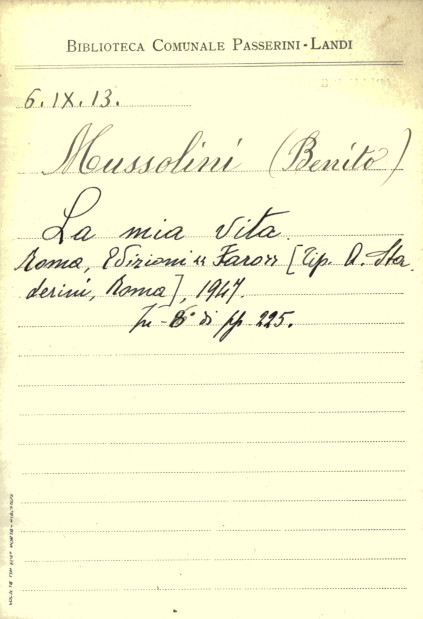 BIBLIOTECA COMUNALE PASSERINI-LANDI
6.IX.13.
Mussolini (Benito)
La mia vita.
Roma, Edizioni "Faro" [Tip. A. Sta-
derini, Roma], 1947.
In-8° di pp 225.